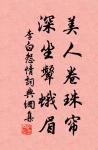 美人卷珠帘
深坐颦蛾眉
李白怨情词典网集